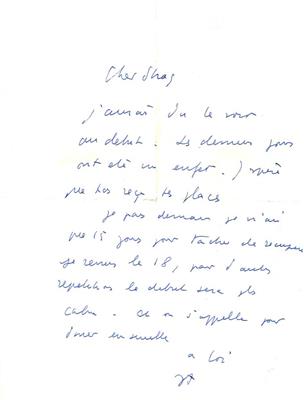 Cher Shag
j'aurai du te voir
au debut. Les derniers jours
ont été un enfer. J'espère
que tas reçu tes places
je pars demain je n'ai
que 15 jours pour tacher de recuperer
je reviens le 18, par d'autres
repetitions le debut sera plus
calme. on s'appelle pour
diner ensemble
a toi